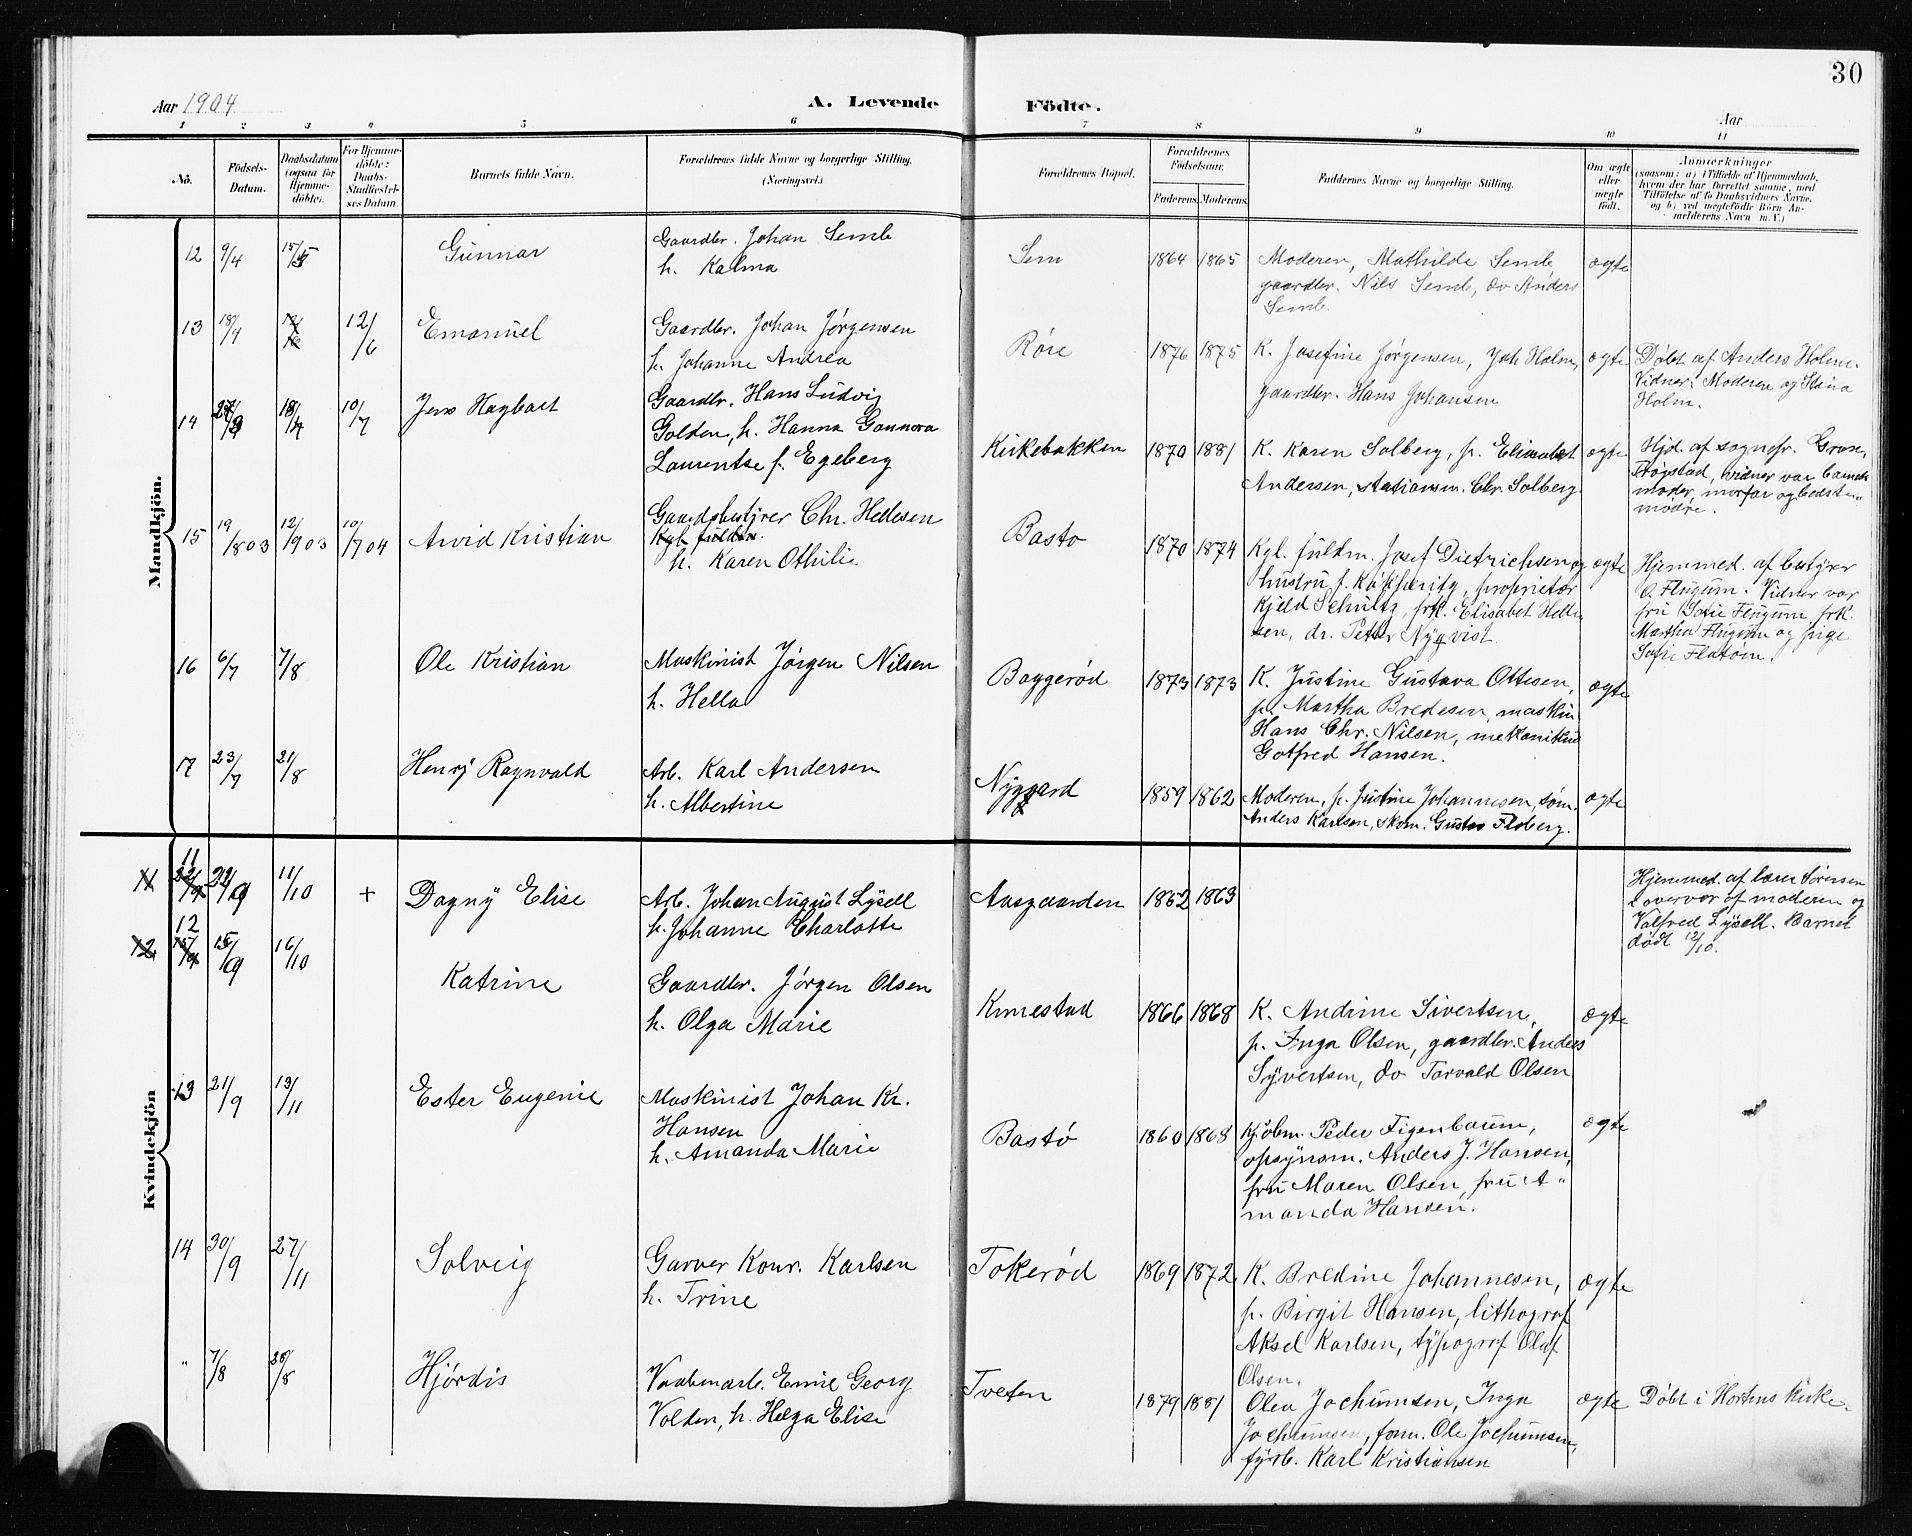 30
Aar 1904
A. Levende Födte.
Aar
1 2 3 4 5 6 7 8 9 10 11
No.
Födsels-Datum.
Daabsdatum (ogsaa for Hjemme-döbte).
For Hjemme-döbte: Daabs-Stadfæstel-ses Datum.
Barnets fulde Navn.
Forældrenes fulde Navne og borgerlige Stilling. (Næringsvei.)
Forældrenes Bopæl.
Forældrenes Födselsaar.
Faderens. Moderens.
Faddernes Navne og borgerlige Stilling.
Om ægte eller uægte födt.
Anmærkninger
(saasom: a) i Tilfælde af Hjemmedaab,
hvem der har forrettet samme, med
Tilföielse af to Daabsvidners Navne.
og b) ved uægtefödte Börn An-
melderens Navn m. V.)
Mandkjön.
12 9/4 15/5 Gunnar
Gaardbr. Johan Semb
h. Kalma
Sem 1864 1865
Moderen, Mathilde Semb
gaardbr. Nils Semb, do Anders
Semb.
ægte
13 18/4 12/6 12/6 Emanuel
Gaardbr. Johan Jørgensen
h. Johanne Andrea
Røre 1876 1875
K. Josefine Jørgensen, Joh Holm,
gaardbr. Hans Johansen
ægte
Døbt af Anders Holm.
Vidner: Moderen og Stina
Holm.
14 10/7 Jens Hagbart
Gaardbr. Hans Ludvig
Golden, h. Hanna Gunnora
Laurentse f. Egeberg
Kirkebakken 1870 1881
K. Karen Solberg, p. Elisabet
Andersen, stationsm. Chr. Solberg
ægte
Hjd. af sognepr. Gran,
vidner var barnets
moder, morfar og bedste-
mødre.
15 19/8 03 12/9 03 10/7 04 Arvid Kristian
Gaardsbestyrer Chr. Hellesen
h. Karen Othilie
Basto 1870 1874
Kgl. fuldm. Josef Dietrichsen og
hustru f. proprietær
Kjeld Schultz, frk. Elisabet Helle-
sen, dr. Petter Nyqvist.
ægte
Hjemmed. af bestyrer
O. Flugum. Vidner var
fru Sofie Flugum frk.
Martha Flugum og pige
Sofie Flatøen.
16 6/7 7/8 Ole Kristian
Maskinist Jørgen Nilsen
h. Hella
Baggerød 1873 1873
K. Justine Gustava Ottesen,
p. Martha Bredesen, maskin
Hans Chr. Nilsen, mekanikus
Gotfred Hansen.
ægte
17 23/7 21/8 Henry Ragnvald
Arb. Karl Andersen
h. Albertine
Nygaard 1859 1862
Moderen, p. Justine Johannesen, tøm.
Anders Karlsen, skom. Gustav Floberg.
ægte
Kvindekjön
11 22/9 11/10 + Dagny Elise
Arb. Johan August Lysell
h. Johanne Charlotte
Aasgaarden 1862 1863
Hjemmed. af lærer Sørensen
i overvær af moderen og
Valfred Lysell. Barnet
dødt 12/10.
12 15/9 16/10 Katrine
Gaardbr. Jørgen Olsen
h. Olga Marie
Knnestad 1866 1868
K. Andrine Sivertsen,
p. Inga Olsen, gaardbr. Anders
Syvertsen, do Torvald Olsen
ægte
13 21/9 13/11 Ester Eugenie
Maskinist Johan Kr.
Hansen
h. Amanda Marie
Bastø 1860 1868
Kjøbm. Peder Figenbaum,
opsynsm. Anders J. Hansen,
fru Maren Olsen, fru A-
manda Hansen.
ægte
14 30/9 27/11 Solveig
Garver Konr. Karlsen
h. Trine
Tokerød 1869 1872
K. Bredine Johannesen,
p. Birgit Hansen, lithograf
Aksel Karlsen, typograf Olaf
Olsen.
ægte
" 7/8 28/8 Hjördis
Vaabenarb. Emil Georg
Volden, h. Helga Elise
Tveten 1879 1881
Olea Jochumsen, Inga
Jochumsen, form. Ole Jochumsen,
fyrb. Karl Kristiansen
ægte
Døbt i Hortens Kirke.